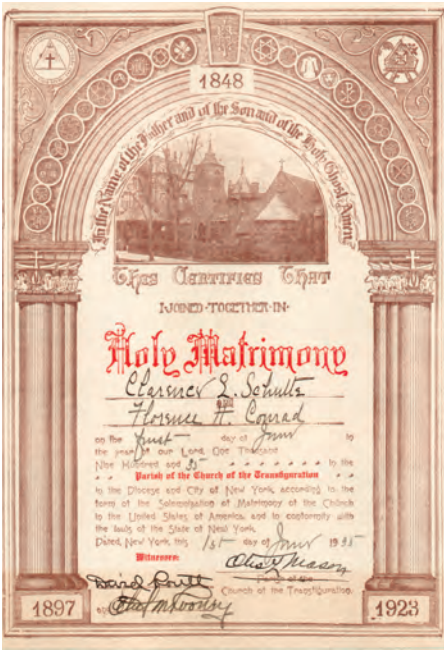 1848
In the Name of the Father and of the Son and of the Holy Ghost, Amen
This Certifies That
I JOINED TOGETHER IN
Holy Matrimony
Clarence E. Schultz
and
Florence H. Conrad
on the first day of June in
the year of our Lord One Thousand
Nine Hundred and 35 in the
Parish of the Church of the Transfiguration
in the Diocese and City of New York, according to the
form of the Solemnization of Matrimony of the Church
in the United States of America, and in conformity with
the laws of the State of New York.
Dated, New York, this 1st day of June 1935
Witnesses:
Mason
of the
Church of the Transfiguration.
David
1897
1923